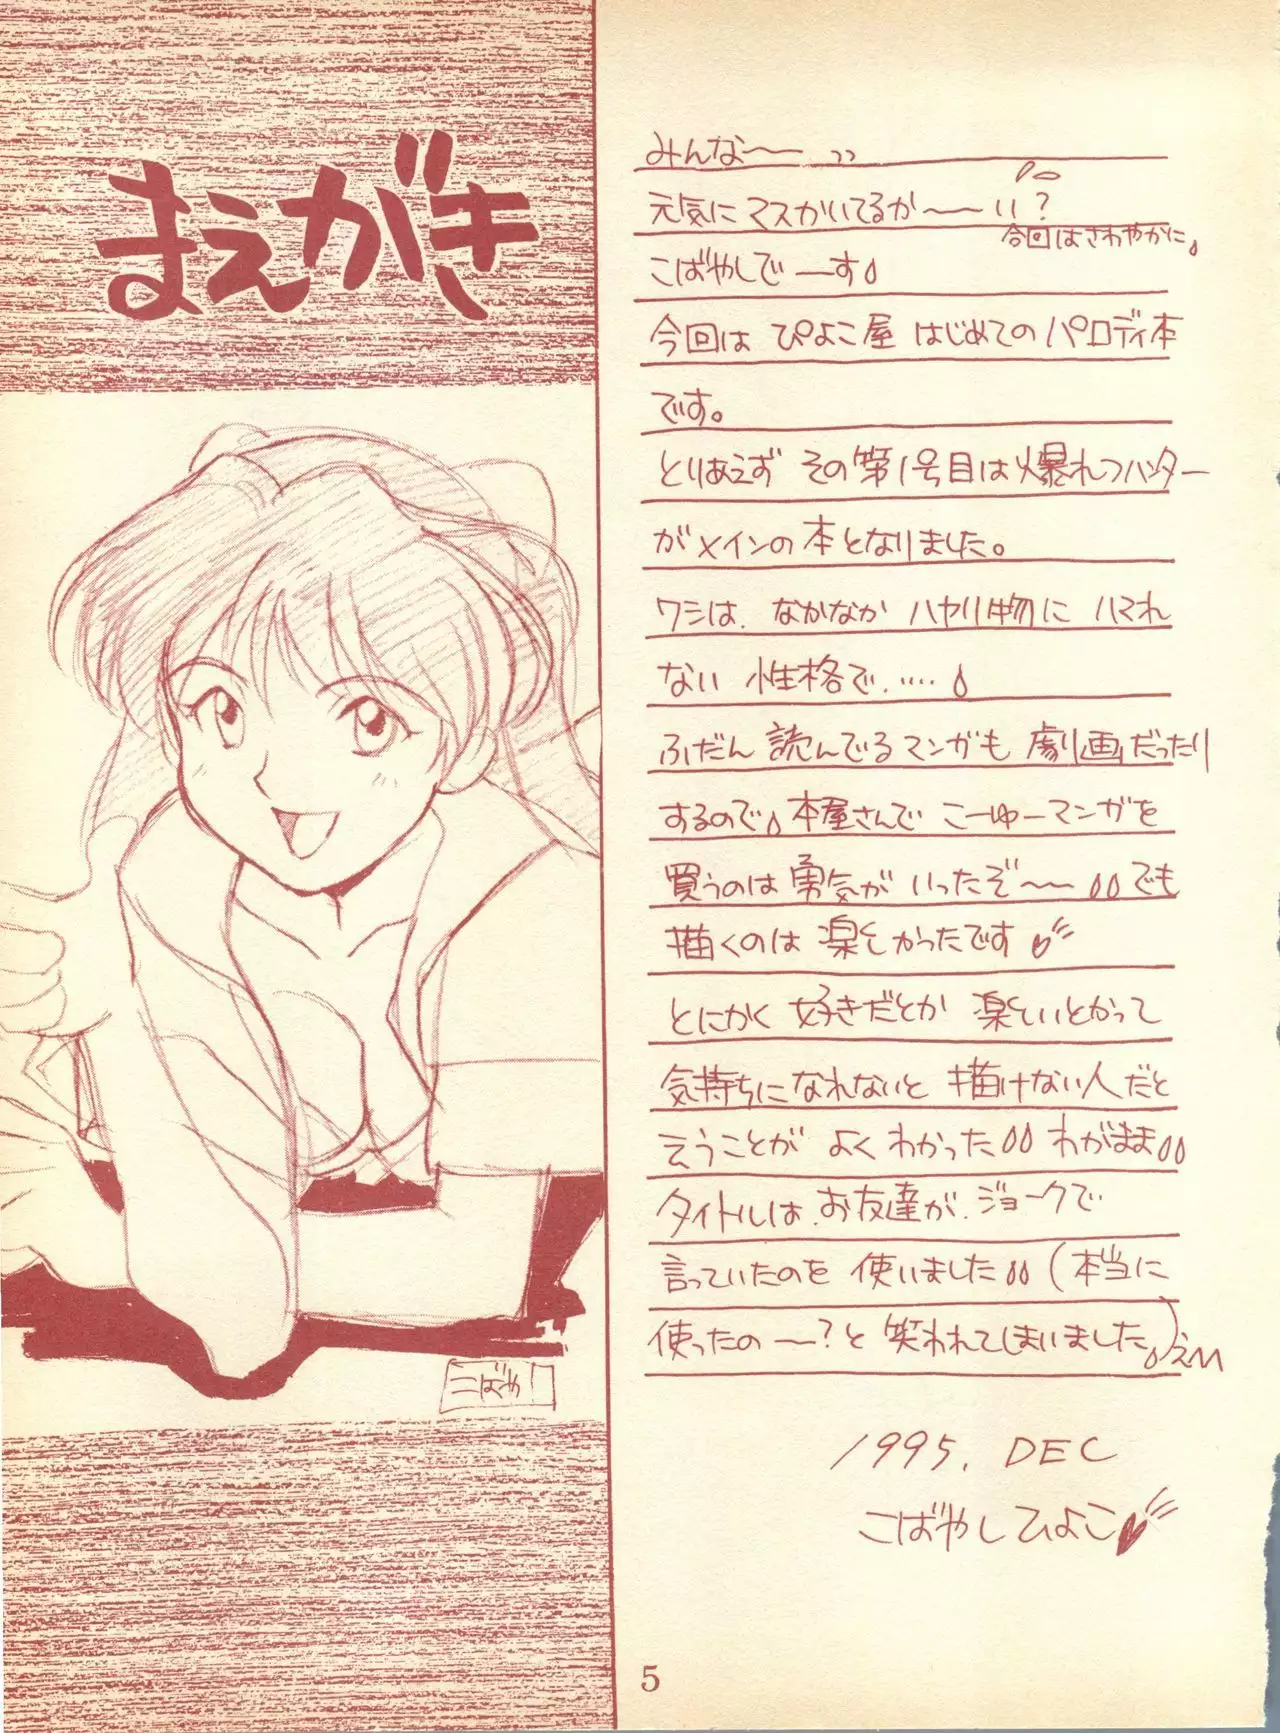 まえがき
みんな〜〜 ッッ
元気にマスかいてるか〜〜い?
今回はさわやかに。
こばやしで―す
今回は ぴよこ屋 はじめてのパロディ本
です。
とりあえず その第1号目は爆れつハンター
がメインの本となりました。
ワシは、なかなか ハヤリ物に ハマれ
ない 性格で‥‥‥
ふだん 読んでるマンガも 劇画だったり
するので 本屋さんで こーゆーマンガを
買うのは 勇気が いったぞ〜〜 でも
描くのは 楽しかったです♡
とにかく 好きだとか 楽しいとかって
気持ちになれないと 描けない人だと
云うことが よくわかった わがまま
タイトルは、お友達が、ジョークで
言っていたのを 使いました (本当に
使ったの〜〜?と 笑われてしまいました。)
こばや!
1995. DEC
こばやしひよこ♡
5